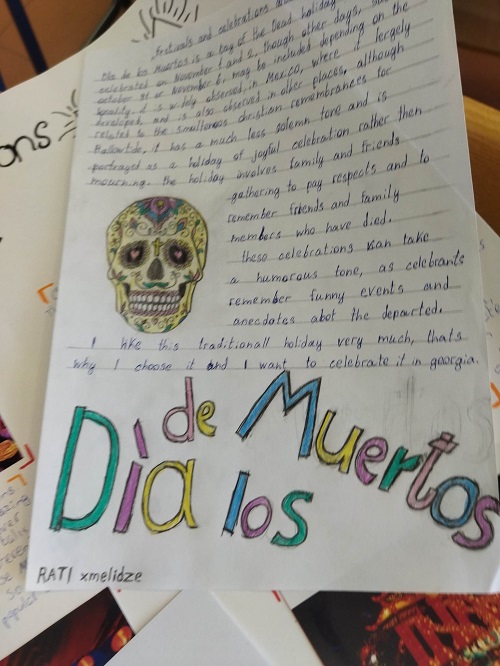 festivals and celebrations
Día de los Muertos is a Day of the Dead holiday
celebrated on November 1 and 2, though other days, such
october 31 or November 6, may be included depending on the
locality, it is widely observed in Mexico, where it largely
developed, and is also observed in other places, although
related to the simultenous christian remembrances for
Hallowtide, it has a much less solemn tone and is
portrayed as a holiday of joyful celebration rather then
mourning. the holiday involves family and friends
gathering to pay respects and to
remember friends and family
members who have died.
these celebrations can take
a humorous tone, as celebrants
remember funny events and
anecdotes abot the departed.
I like this traditionall holiday very much, thats
why I choose it and I want to celebrate it in georgia.
Dìa de los Muertos
RATI xmelidze
ons